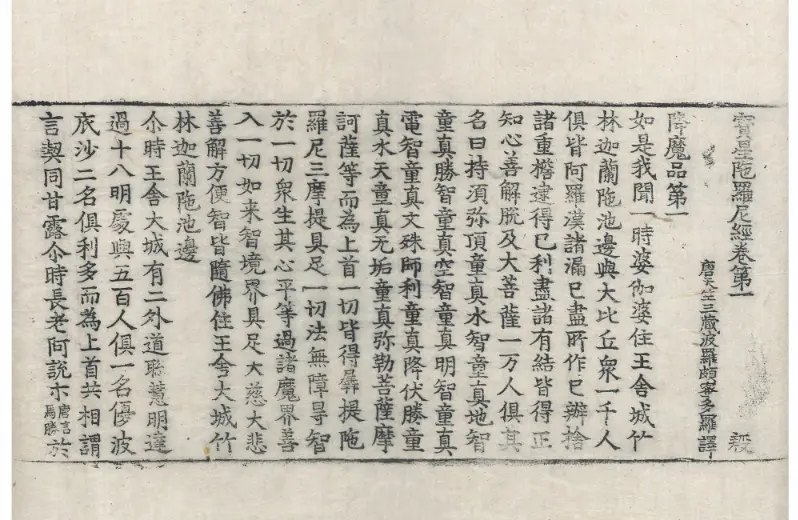 寶星陁羅尼經卷第一 殺
唐天竺三藏波羅頗蜜多羅譯
降魔品第一
如是我聞一時婆伽婆住王舍城竹
林迦蘭陁池邊與大比丘衆一千人
俱皆阿羅漢諸漏已盡所作已辦捨
諸重擔逮得已利盡諸有結皆得正
知心善解脫及大菩薩一万人俱其
名曰持須弥頂童真水智童真地智
童真勝智童真空智童真明智童真
電智童真文殊師利童真降伏勝童
真水天童真无垢童真弥勒菩薩摩
訶薩等而為上首一切皆得羼提陁
羅尼三摩提具足一切法無障㝵智
於一切衆生其心平等過諸魔界善
入一切如来智境界具足大慈大悲
善解方便智皆隨佛住王舍大城竹
林迦蘭陁池邊
尒時王舍大城有二外道聡慧明達
過十八明處與五百人俱一名優波
底沙二名俱利多而為上首共相謂
言契同甘露尒時長老阿説示唐言馬勝於